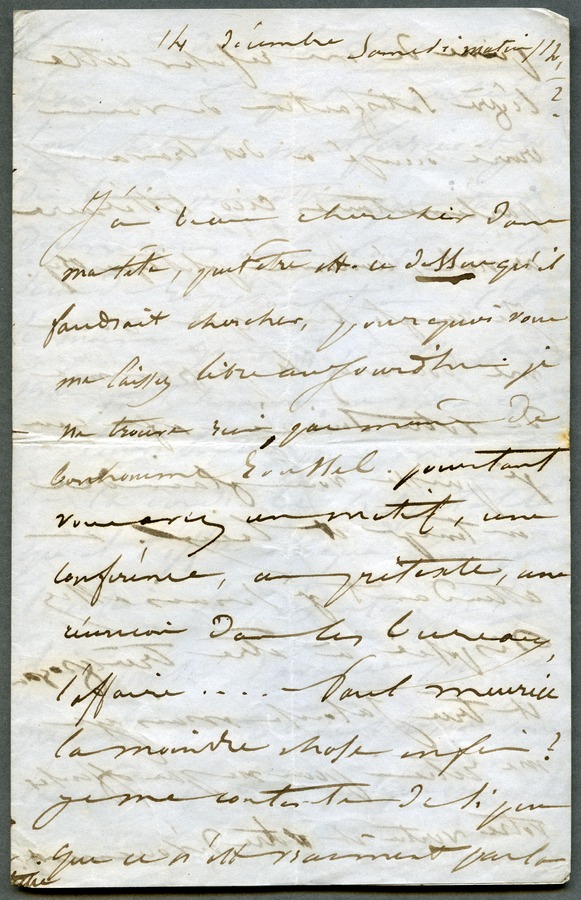 14 décembre Samedi matin / 12 1/2.
J'ai beau chercher dans
ma tête, peut être est-ce dessous qu'il
faudrait chercher, pourquoi vous
me laissez libre aujourd'hui je
ne trouve rien, pas même de
Roussel. pourtant
vous avez un motif, une
conférence, un prétexte, une
réunion dans les bureaux,
l'affaire .... Paul meurice
la moindre chose enfin?
je me contente de si peu
que ce n'est vraiment pas la